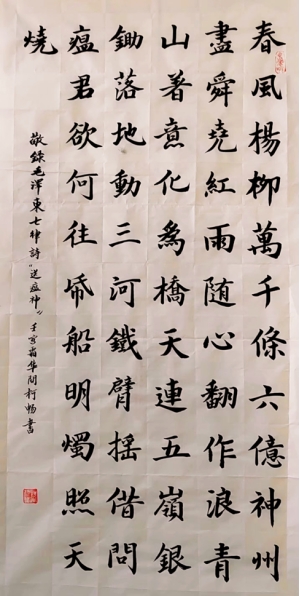 春風楊柳萬千條六億神州
盡舜堯紅雨隨心翻作浪青
山著意化為橋天連五嶺銀
鋤落地動三河鐵臂搖借問
瘟君欲何往紙船明燭照天
燒
敬錄毛澤東七律詩“送瘟神” 壬寅 華閣柯暢書